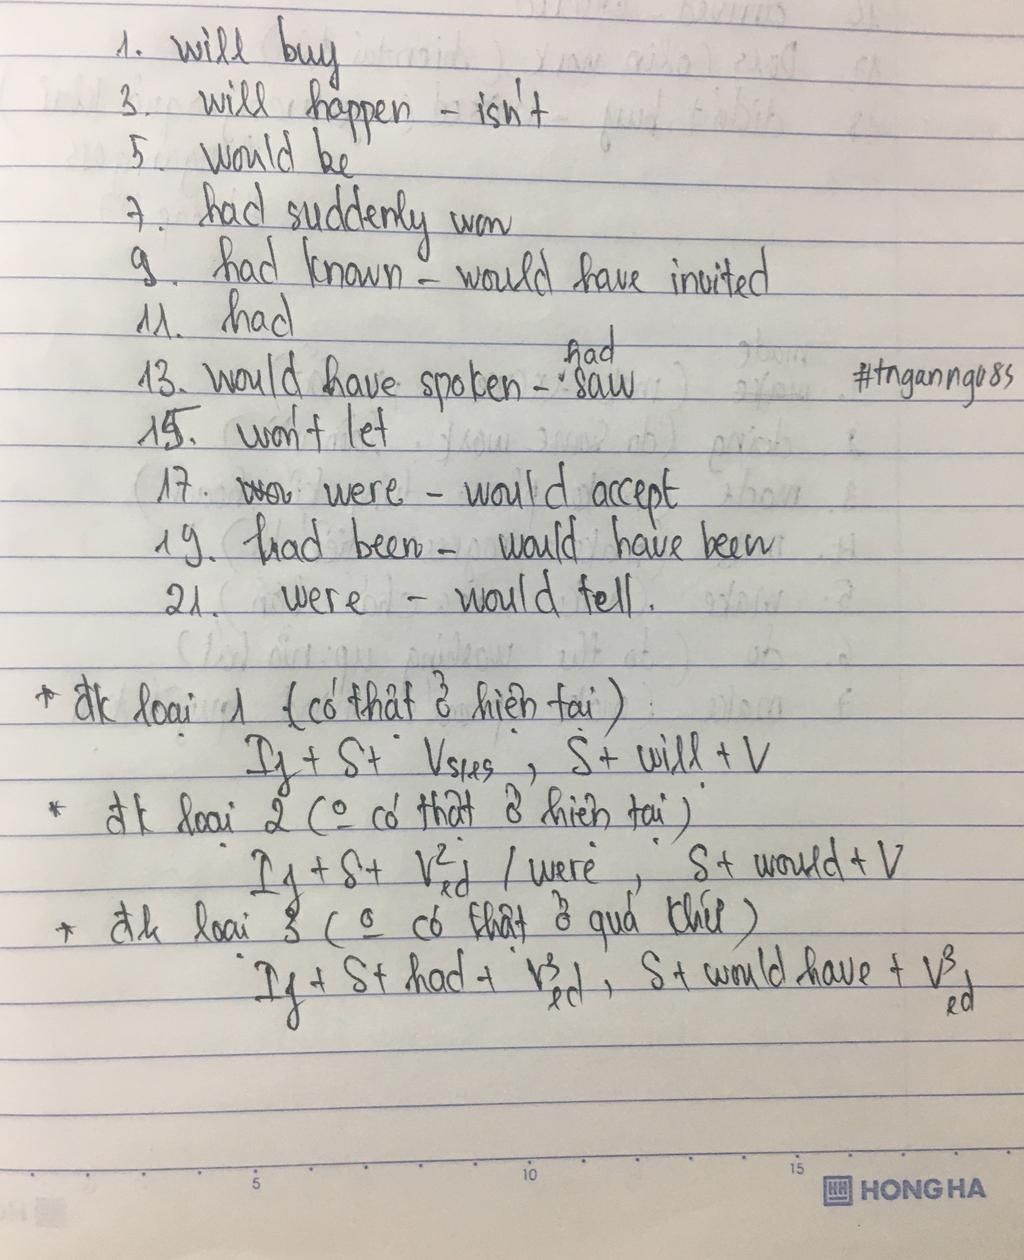 1. will buy
3. will happen - isn't
5. would be
7. had suddenly won
9. had known - would have invited
11. had
had
13. would have spoken - saw
#tnganng085
15. won't let
17. were - would accept
19. had been - would have been
21. were - would tell.
* đk loại 1 (có thật ở hiện tại)
If + S + Vs/es, S + will + V
* đk loại 2 (o có thật ở hiện tại)
If + S + V2/ed / were, S + would + V
* đk loại 3 (o có thật ở quá khứ)
If + S + had + V3/ed, S + would have + V3/ed
5 10 15
HH HONG HA